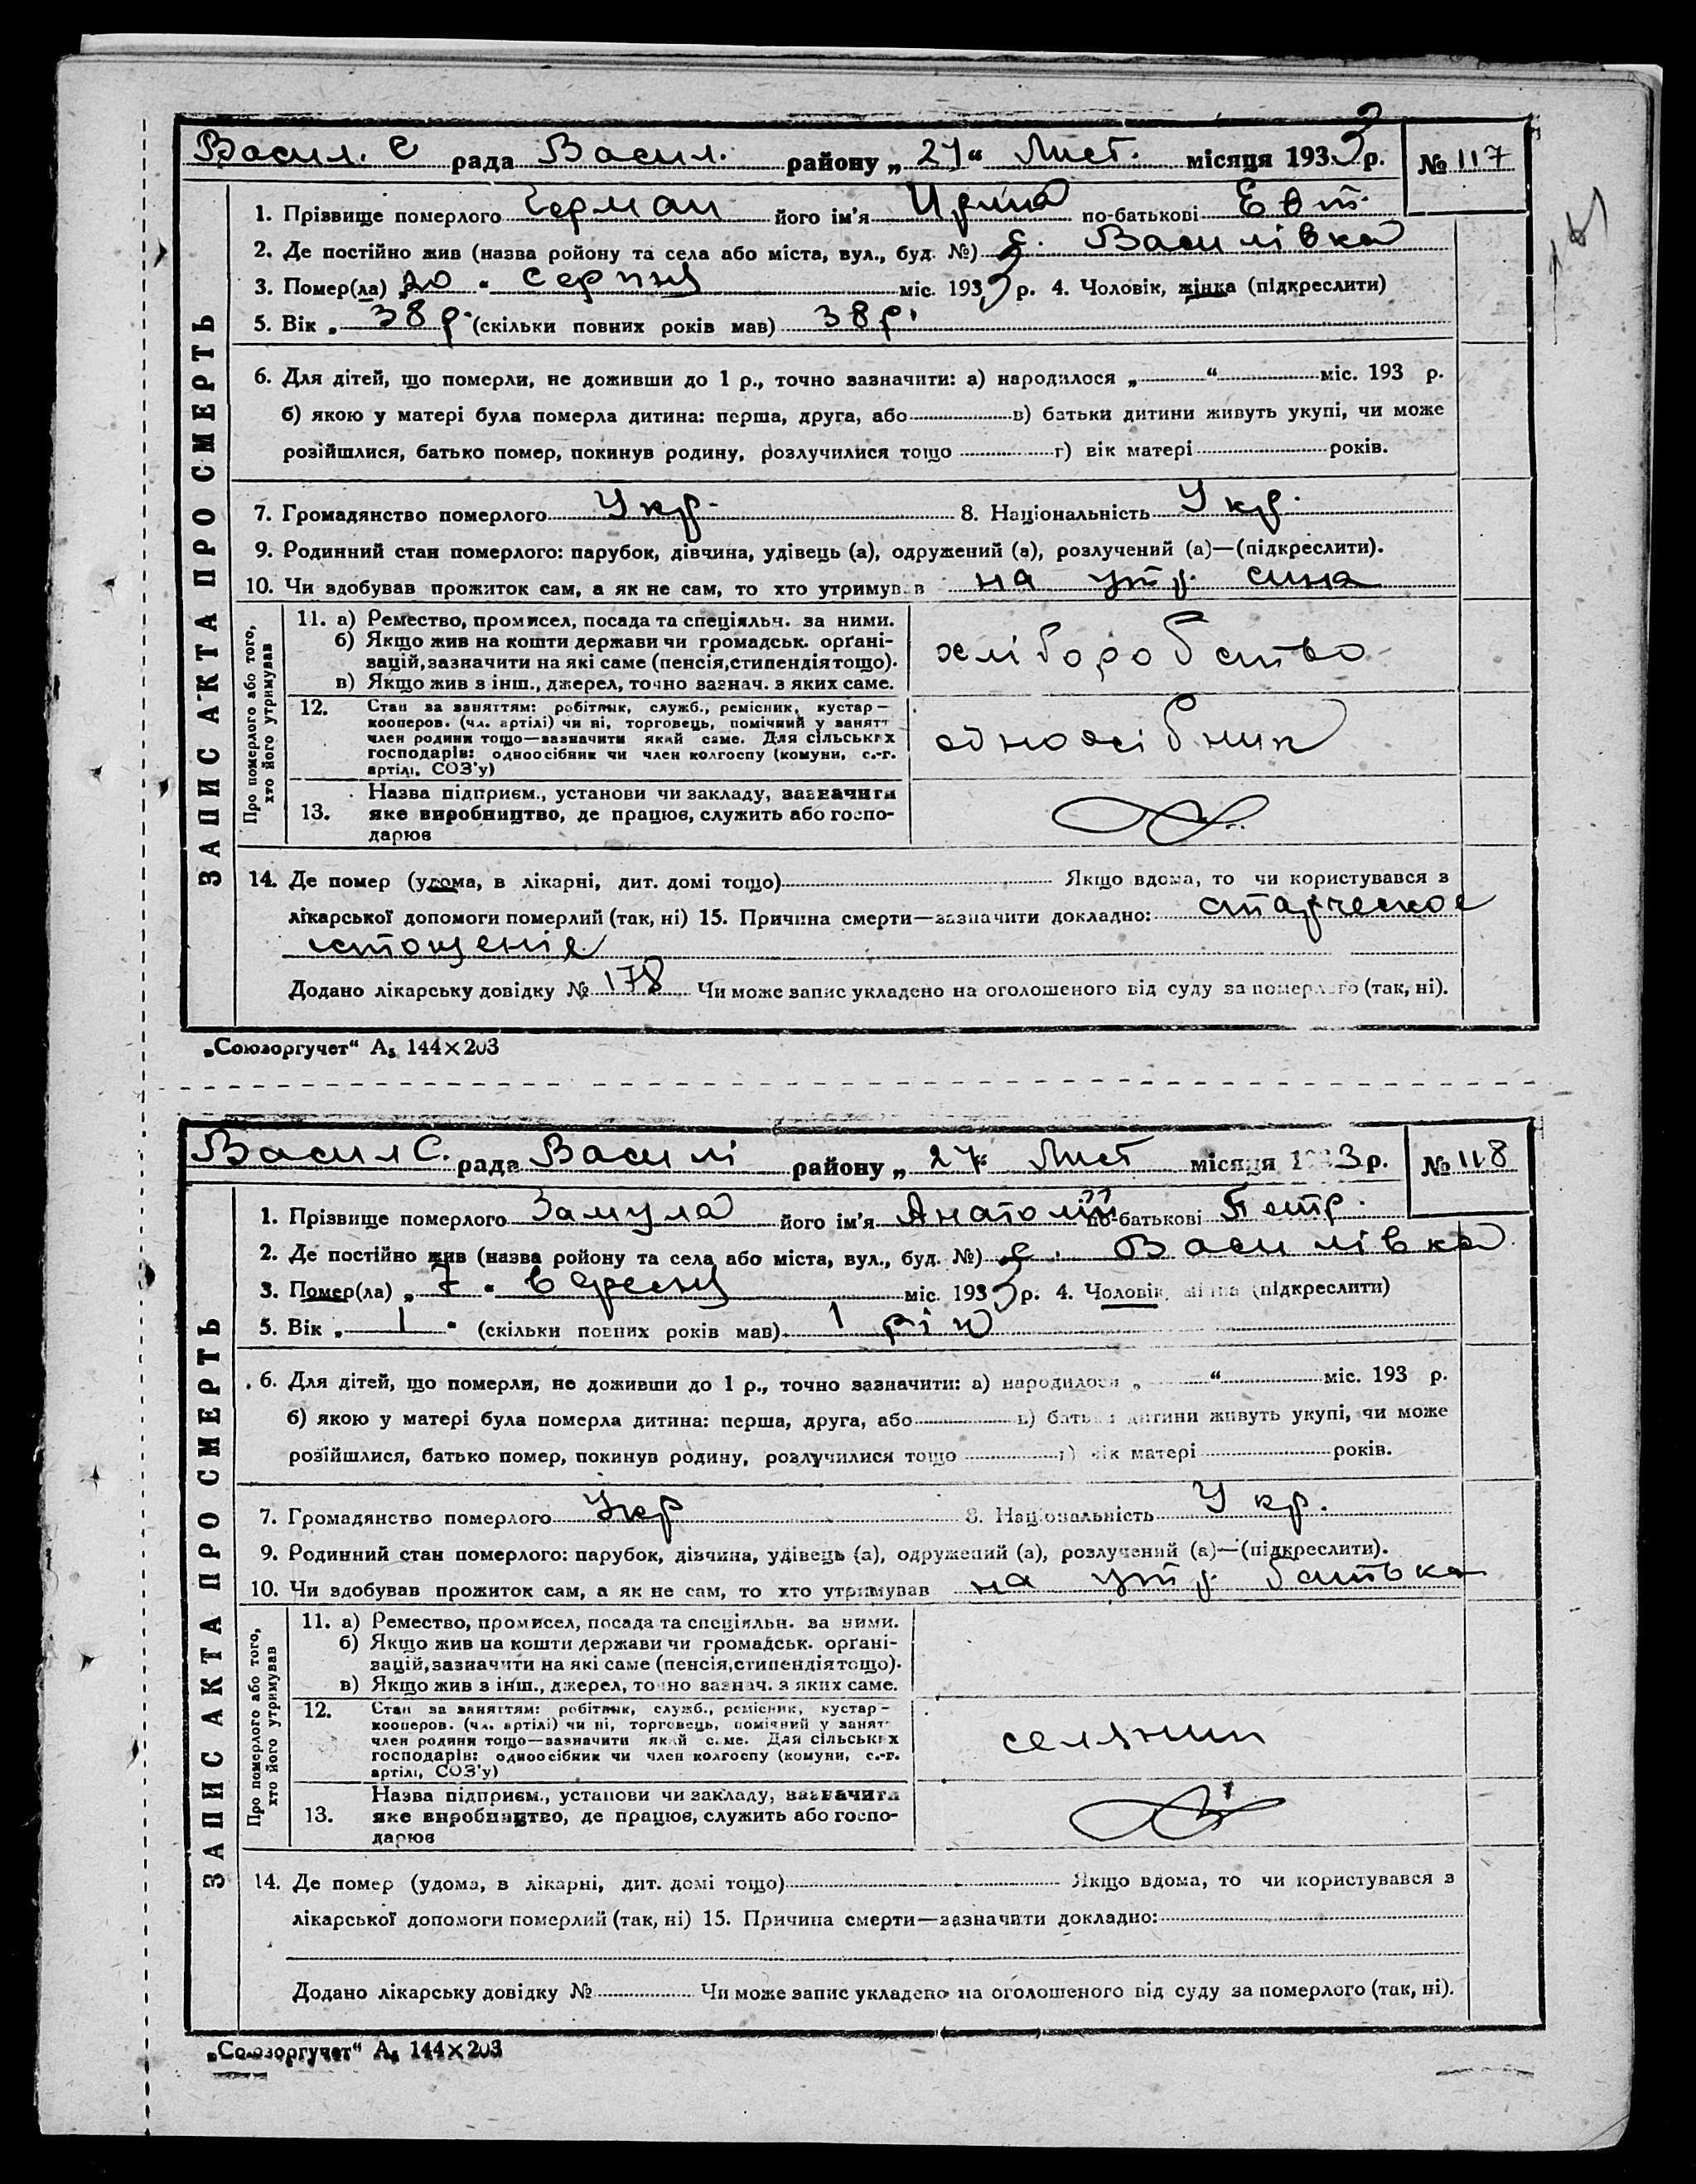 Васил. С рада Васил. району „27“ Лист. місяця 1933 р. № 117
1. Прізвище померлого Герман його ім'я Ирина по-батькові Евт.
2. Де постійно жив (назва ройону та села або міста, вул., буд. №) с. Василівка
3. Помер(ла) „20“ серпня міс. 1933 р. 4. Чоловік, жінка (підкреслити)
5. Вік „ 38 р. (скільки повних років мав) 38 р.
6. Для дітей, що померли, не доживши до 1 р., точно зазначити: а) народилося „ “ міс. 193 р.
б) якою у матері була померла дитина: перша, друга, або в) батьки дитини живуть укупі, чи може
розійшлися, батько помер, покинув родину, розлучилися тощо г) вік матері років.
7. Громадянство померлого Укр. 8. Національність Укр.
9. Родинний стан померлого: парубок, дівчина, удівець (а), одружений (а), розлучений (а)—(підкреслити).
10. Чи здобував прожиток сам, а як не сам, то хто утримував на утр. сина
ЗАПИС АКТА ПРО СМЕРТЬ
Про померлого або того,
хто його утримував
11. а) Ремество, промисел, посада та спеціяльн. за ними.
б) Якщо жив на кошти держави чи громадськ. орґані-
зацій, зазначити на які саме (пенсія, стипендія тощо).
в) Якщо жив з інш., джерел, точно зазнач. з яких саме.
хліборобство
12. Стан за заняттям: робітник, служб., ремісник, кустар—
кооперов. (чл. артілі) чи ні, торговець, помічний у занятт
член родини тощо—зазначити який саме. Для сільських
господарів: одноосібник чи член колгоспу (комуни, с.-г.
артілі, СОЗ'у)
одноосібник
13. Назва підприєм., установи чи закладу, зазначити
яке виробництво, де працює, служить або госпо-
дарює
14. Де помер (удома, в лікарні, дит. домі тощо) Якщо вдома, то чи користувався з
лікарської допомоги померлий (так, ні) 15. Причина смерти—зазначити докладно: старческое
истощеніе
Додано лікарську довідку № 178 Чи може запис укладено на оголошеного від суду за померлого (так, ні).
„Союзоргучет“ А5 144×203
Васил С. рада Василі району „27“ Лист місяця 1933 р. № 118
1. Прізвище померлого Замула його ім'я Анатолій по-батькові Петр.
2. Де постійно жив (назва ройону та села або міста, вул., буд. №) с. Василівка
3. Помер(ла) „7“ вересня міс. 1933 р. 4. Чоловік, жінка (підкреслити)
5. Вік „ 1 “ (скільки повних років мав) 1 рік
6. Для дітей, що померли, не доживши до 1 р., точно зазначити: а) народилося „ “ міс. 193 р.
б) якою у матері була померла дитина: перша, друга, або в) батьки дитини живуть укупі, чи може
розійшлися, батько помер, покинув родину, розлучилися тощо г) вік матері років.
7. Громадянство померлого Укр 8. Національність Укр.
9. Родинний стан померлого: парубок, дівчина, удівець (а), одружений (а), розлучений (а)—(підкреслити).
10. Чи здобував прожиток сам, а як не сам, то хто утримував на утр. батька
ЗАПИС АКТА ПРО СМЕРТЬ
Про померлого або того,
хто його утримував
11. а) Ремество, промисел, посада та спеціяльн. за ними.
б) Якщо жив на кошти держави чи громадськ. орґані-
зацій, зазначити на які саме (пенсія, стипендія тощо).
в) Якщо жив з інш., джерел, точно зазнач. з яких саме.
12. Стан за заняттям: робітник, служб., ремісник, кустар—
кооперов. (чл. артілі) чи ні, торговець, помічний у занят
член родини тощо—зазначити який саме. Для сільських
господарів: одноосібник чи член колгоспу (комуни, с.-г.
артілі, СОЗ'у)
селянин
13. Назва підприєм., установи чи закладу, зазначити
яке виробництво, де працює, служить або госпо-
дарює
14. Де помер (удома, в лікарні, дит. домі тощо) Якщо вдома, то чи користувався з
лікарської допомоги померлий (так, ні) 15. Причина смерти—зазначити докладно:
Додано лікарську довідку № Чи може запис укладено на оголошеного від суду за померлого (так, ні).
„Союзоргучет“ А5 144×203